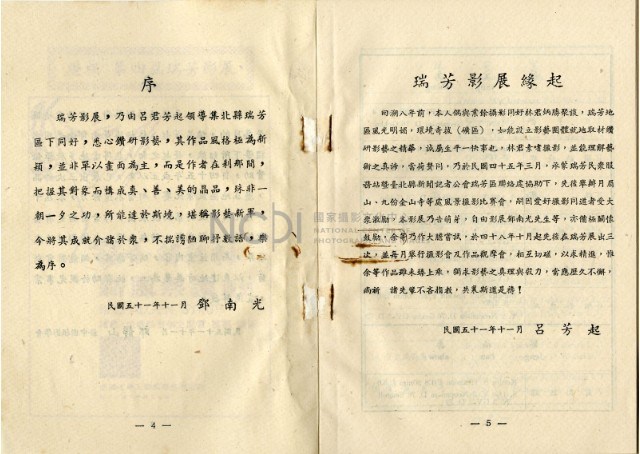 序
瑞芳影展,乃由呂君芳起領導集北縣瑞芳
區下同好,悉心鑽研影藝,其作品風格極為新
穎,並非單以畫面為主,而是作者在剎那間,
把握其對象而構成真、善、美的晶品,殊非一
朝一夕之功,所能達於斯境,堪稱影藝新軍。
今將其成就介諸於眾,不揣謭陋聊抒數語,樂
為序。
民國五十一年十一月 鄧南光
— 4 —
瑞芳影展緣起
回溯八年前,本人偶與業餘攝影同好林君炳勝聚談,瑞芳地
區風光明媚,環境奇拔(礦區),如能設立影藝團體就地取材鑽
研影藝之精華,誠屬生平一快事也。林君素嗜攝影,並能理解藝
術之真諦,當荷贊同,乃於民國四十五年三月,承蒙瑞芳民眾服
務站暨臺北縣新聞記者公會瑞芳區聯絡處協助下,先後舉辦月眉
山、九份金山寺等處風景攝影比賽會,
大眾激勵。本影展乃告萌芽,自由影展鄧南光先生等,亦備極關懷
鼓勵,余等乃作大膽嘗試,於四十八年十月起先後在瑞芳展出三
次,並每月舉行攝影會及作品觀摩會,相互切磋,以求精進,惟
余等作品雖未臻上乘,
尚祈 諸先輩不吝指教,共策斯道是禱!
民國五十一年十一月 呂芳起
— 5 —
NCPI
國家攝影
NATIONAL
PHOTOGRAPHY